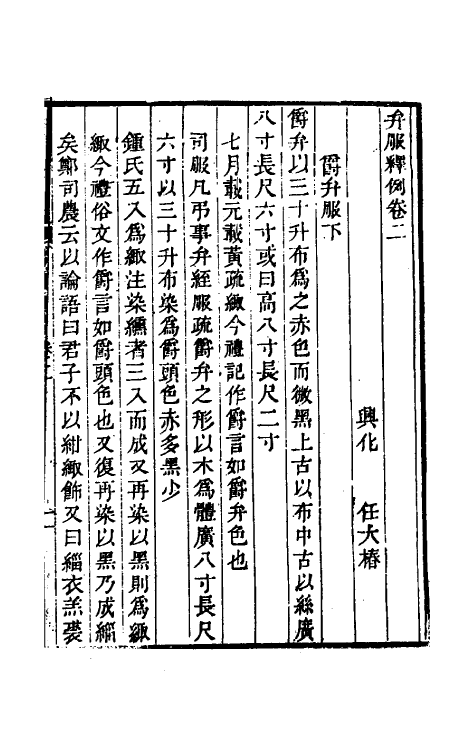 弁服釋例卷二
興化 任大椿
爵弁服下
爵弁以三十升布爲之赤色而微黑上古以布中古以絲廣
八寸長尺六寸或曰高八寸長尺二寸
七月載元載黃疏緅今禮記作爵言如爵弁色也
司服凡弔事弁絰服疏爵弁之形以木爲體廣八寸長尺
六寸以三十升布染爲爵頭色赤多黑少
鍾氏五入爲緅注染纁者三入而成又再染以黑則爲緅
緅今禮俗文作爵言如爵頭色也又復再染以黑乃成緇
矣鄭司農云以論語曰君子不以紺緅飾又曰緇衣羔裘